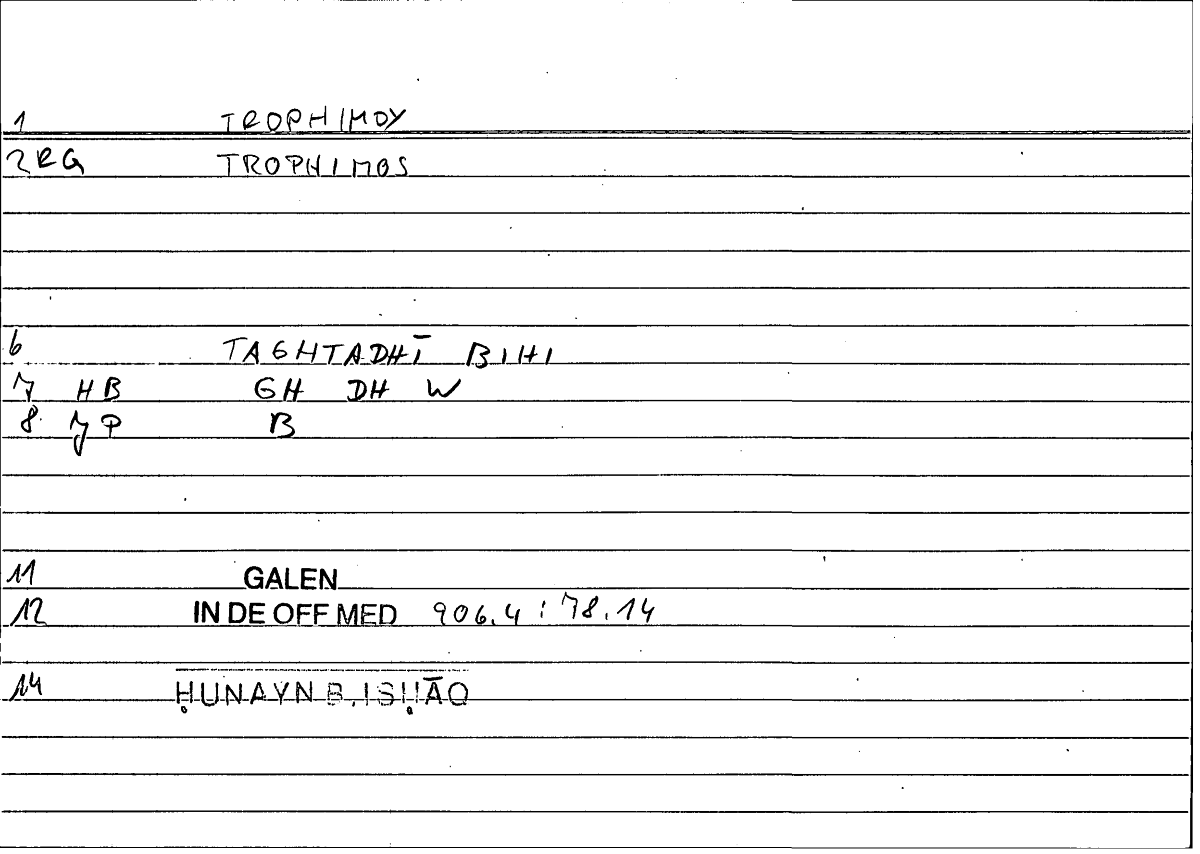 1 TROPHIMOY
2RG TROPHIMOS
6 TAGHTADHĪ BIHI
7 HB GH DH W
8 JP B
11 GALEN
12 IN DE OFF MED 906.4 : 78.14
14 ḤUNAYN B. ISḤĀQ